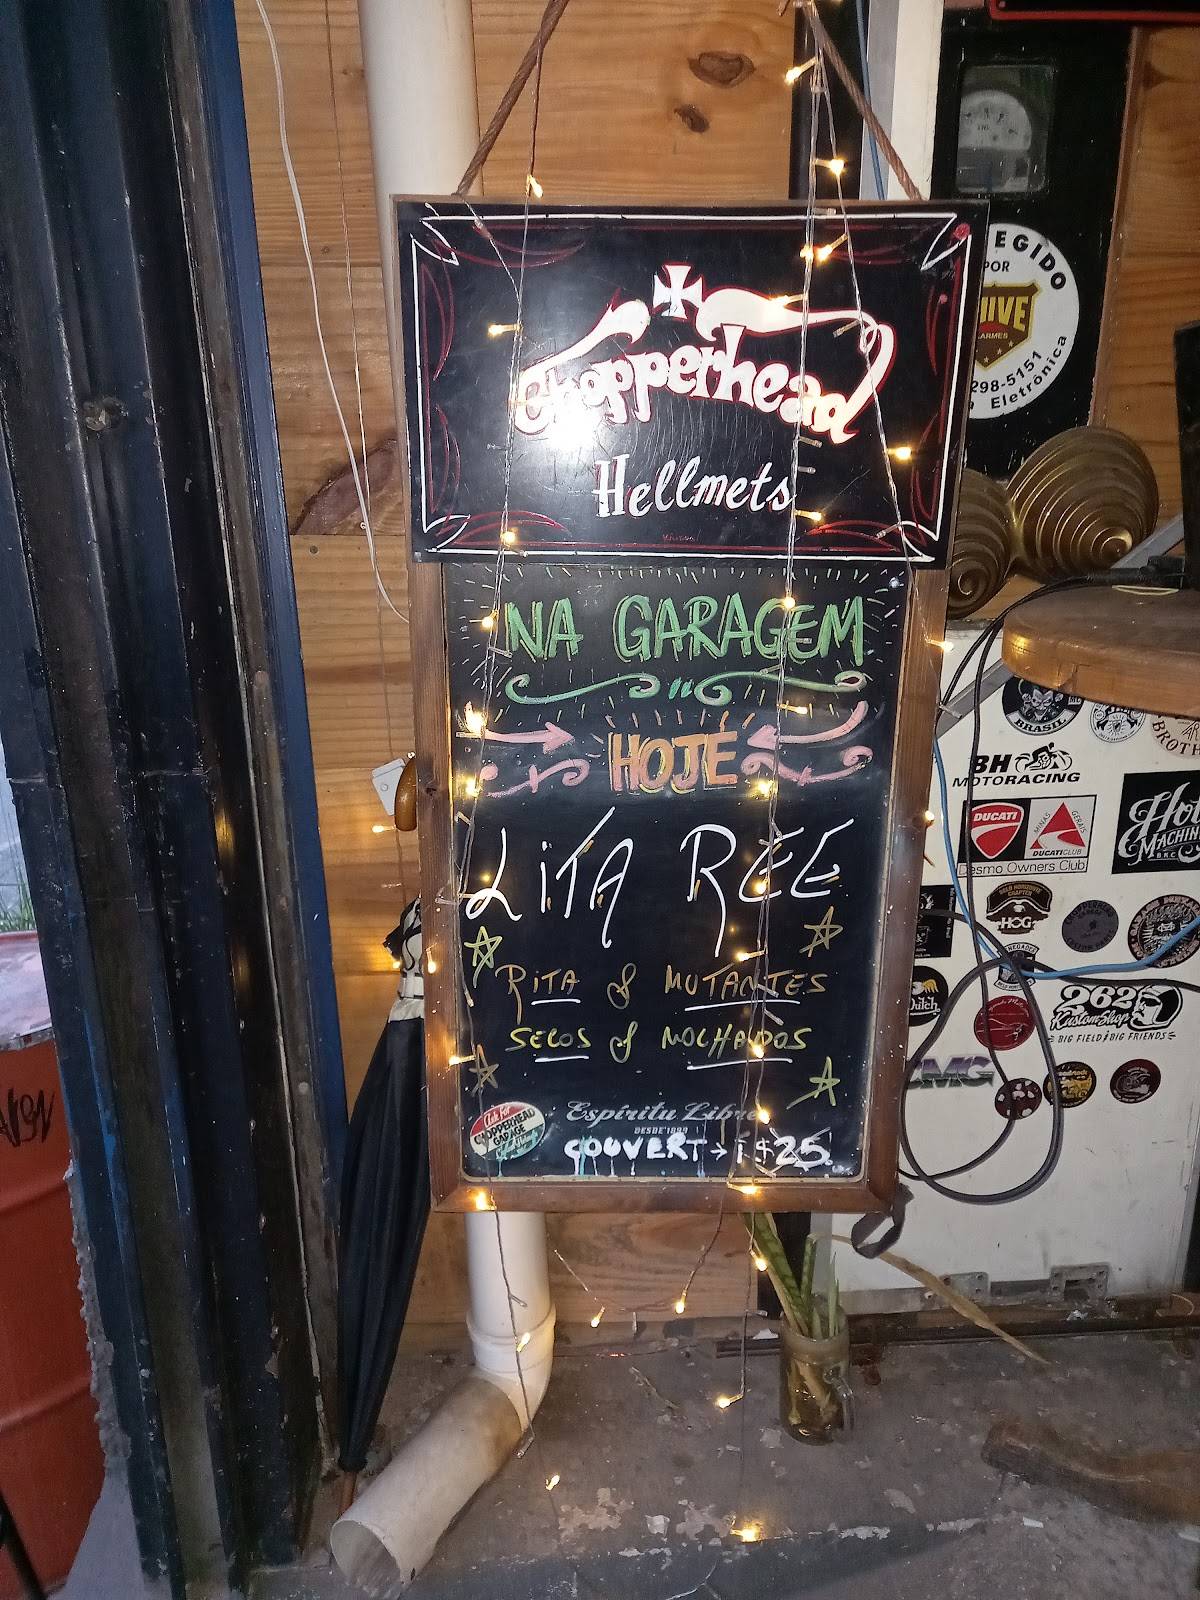 Chopperhead
Hellmets
NA GARAGEM
HOJE
LITA REE
RITA & MUTANTES
SECOS & MOLHADOS
Ask For
CHOPPERHEAD
GARAGE
Espíritu Libre
DESDE 1999
COUVERT → $25
EGIDO
POR
ALARMES
298-5151
Eletrônica
BRASIL
BROTH
BH
MOTORACING
DUCATI
MINAS
GERAIS
DUCATICLUB
Desmo Owners Club
MACHIN
BELO HORIZONTE
CHAPTER
HOG
Dutch
262
KustomShop
BIG FIELD BIG FRIENDS
CMG